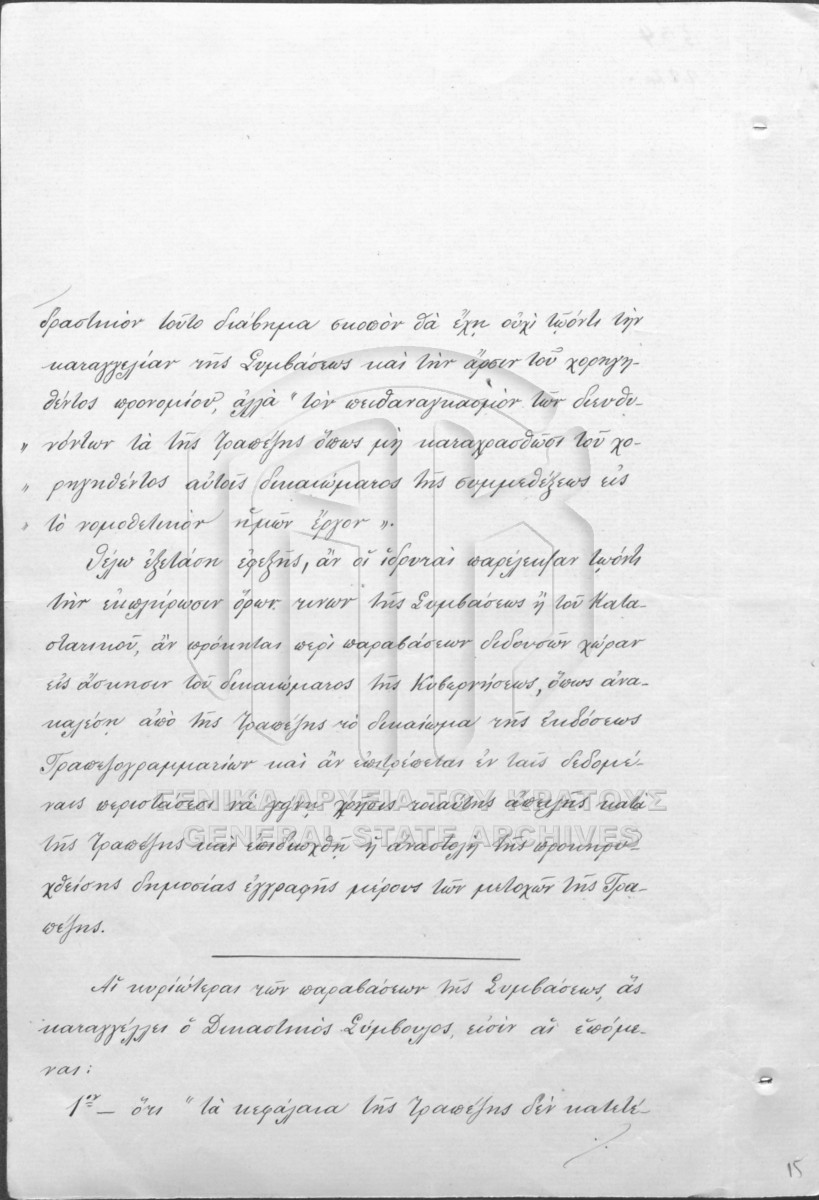 δραστικὸν τοῦτο διάβημα σκοπὸν θὰ ἔχῃ οὐχὶ τῷόντι τὴν
καταγγελίαν τῆς Συμβάσεως καὶ τὴν ἄρσιν τοῦ χορηγη-
θέντος προνομίου, ἀλλὰ " τὸν πειθαναγκασμὸν τῶν διευθυ-
„ νόντων τὰ τῆς Τραπέζης ὅπως μὴ καταχρασθῶσι τοῦ χο-
„ ρηγηθέντος αὐτοῖς δικαιώματος τῆς συμμεθέξεως εἰς
„ τὸ νομοθετικὸν ἡμῶν ἔργον ".
Θέλω ἐξετάση ἐφεξῆς, ἂν οἱ ἱδρυταὶ παρέλειψαν τῷόντι
τὴν ἐκπλήρωσιν ὅρων τινων τῆς Συμβάσεως ἢ τοῦ Κατα-
στατικοῦ, ἂν πρόκηται περὶ παραβάσεων δεδουσῶν χώραν
εἰς ἄσκησιν τοῦ δικαιώματος τῆς Κυβερνήσεως, ὅπως ἀνα-
καλέσῃ ἀπὸ τῆς Τραπέζης τὸ δικαίωμα τῆς ἐκδόσεως
Τραπεζογραμματίων καὶ ἂν ἐπιτρέπεται ἐν ταῖς δεδομέ-
ναις περιστάσεσι νὰ γίνῃ χρῆσις τοιαύτης ἀπειλῆς κατὰ
τῆς Τραπέζης καὶ ἐπιδιωχθῇ ἡ ἀναστολὴ τῆς προκηρυ-
χθείσης δημοσίας ἐγγραφῆς μέρους τῶν μετοχῶν τῆς Τρα-
πέζης.
Αἱ κυριώτεραι τῶν παραβάσεων τῆς Συμβάσεως, ἃς
καταγγέλλει ὁ Δικαστικὸς Σύμβουλος, εἰσὶν αἱ ἑπόμε-
ναι:
1ον — ὅτι " τὰ κεφάλαια τῆς Τραπέζης δὲν κατετέ-
./.
15
ΓΕΝΙΚΑ ΑΡΧΕΙΑ ΤΟΥ ΚΡΑΤΟΥΣ
GENERAL STATE ARCHIVES